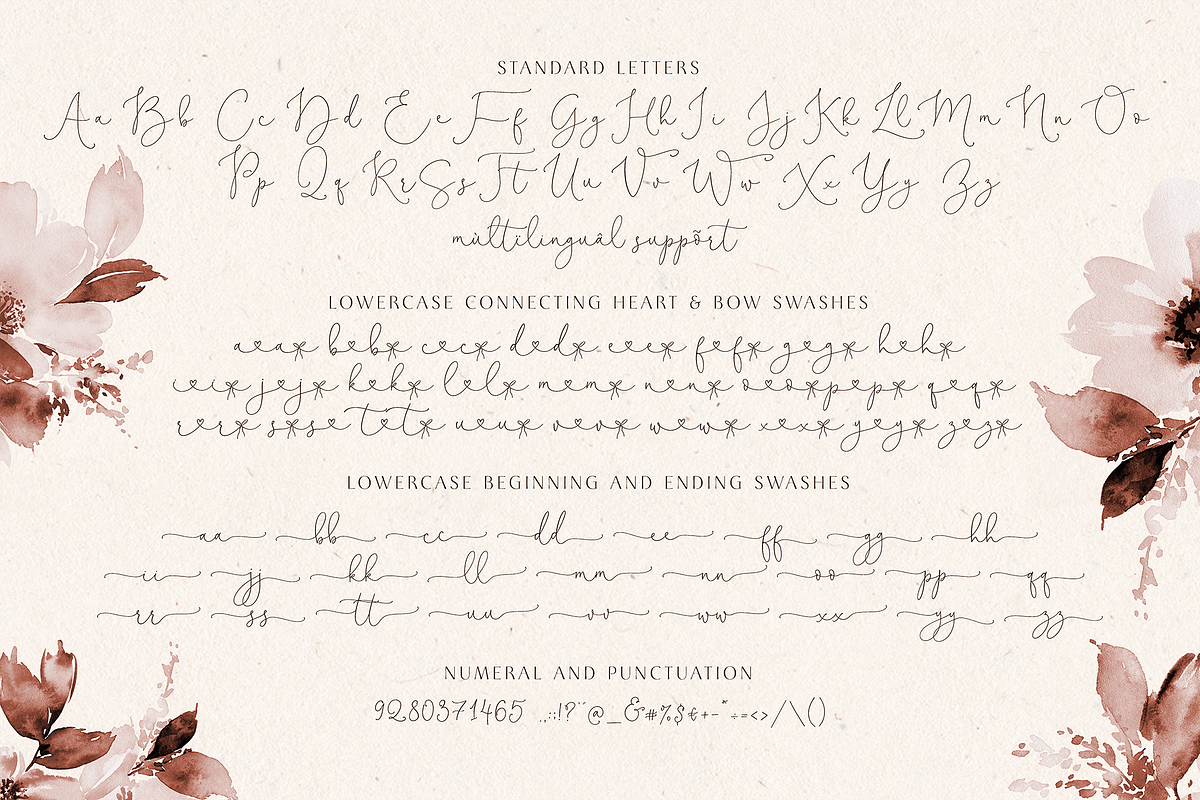 STANDARD LETTERS
Aa Bb Cc Dd Ee Ff Gg Hh Ii Jj Kk Ll Mm Nn Oo
Pp Qq Rr Ss Tt Uu Vv Ww Xx Yy Zz
mùltïlinguâl suppõrt
LOWERCASE CONNECTING HEART & BOW SWASHES
a♥a bb cc dd ee ff gg hh
ii jj kk ll mm nn oo pp qq
rr ss tt uu vv ww xx yy zz
LOWERCASE BEGINNING AND ENDING SWASHES
aa bb cc dd ee ff gg hh
ii jj kk ll mm nn oo pp qq
rr ss tt uu vv ww xx yy zz
NUMERAL AND PUNCTUATION
9280371465 .,:;!?¨@_&#%$€+-*÷=<>/\()